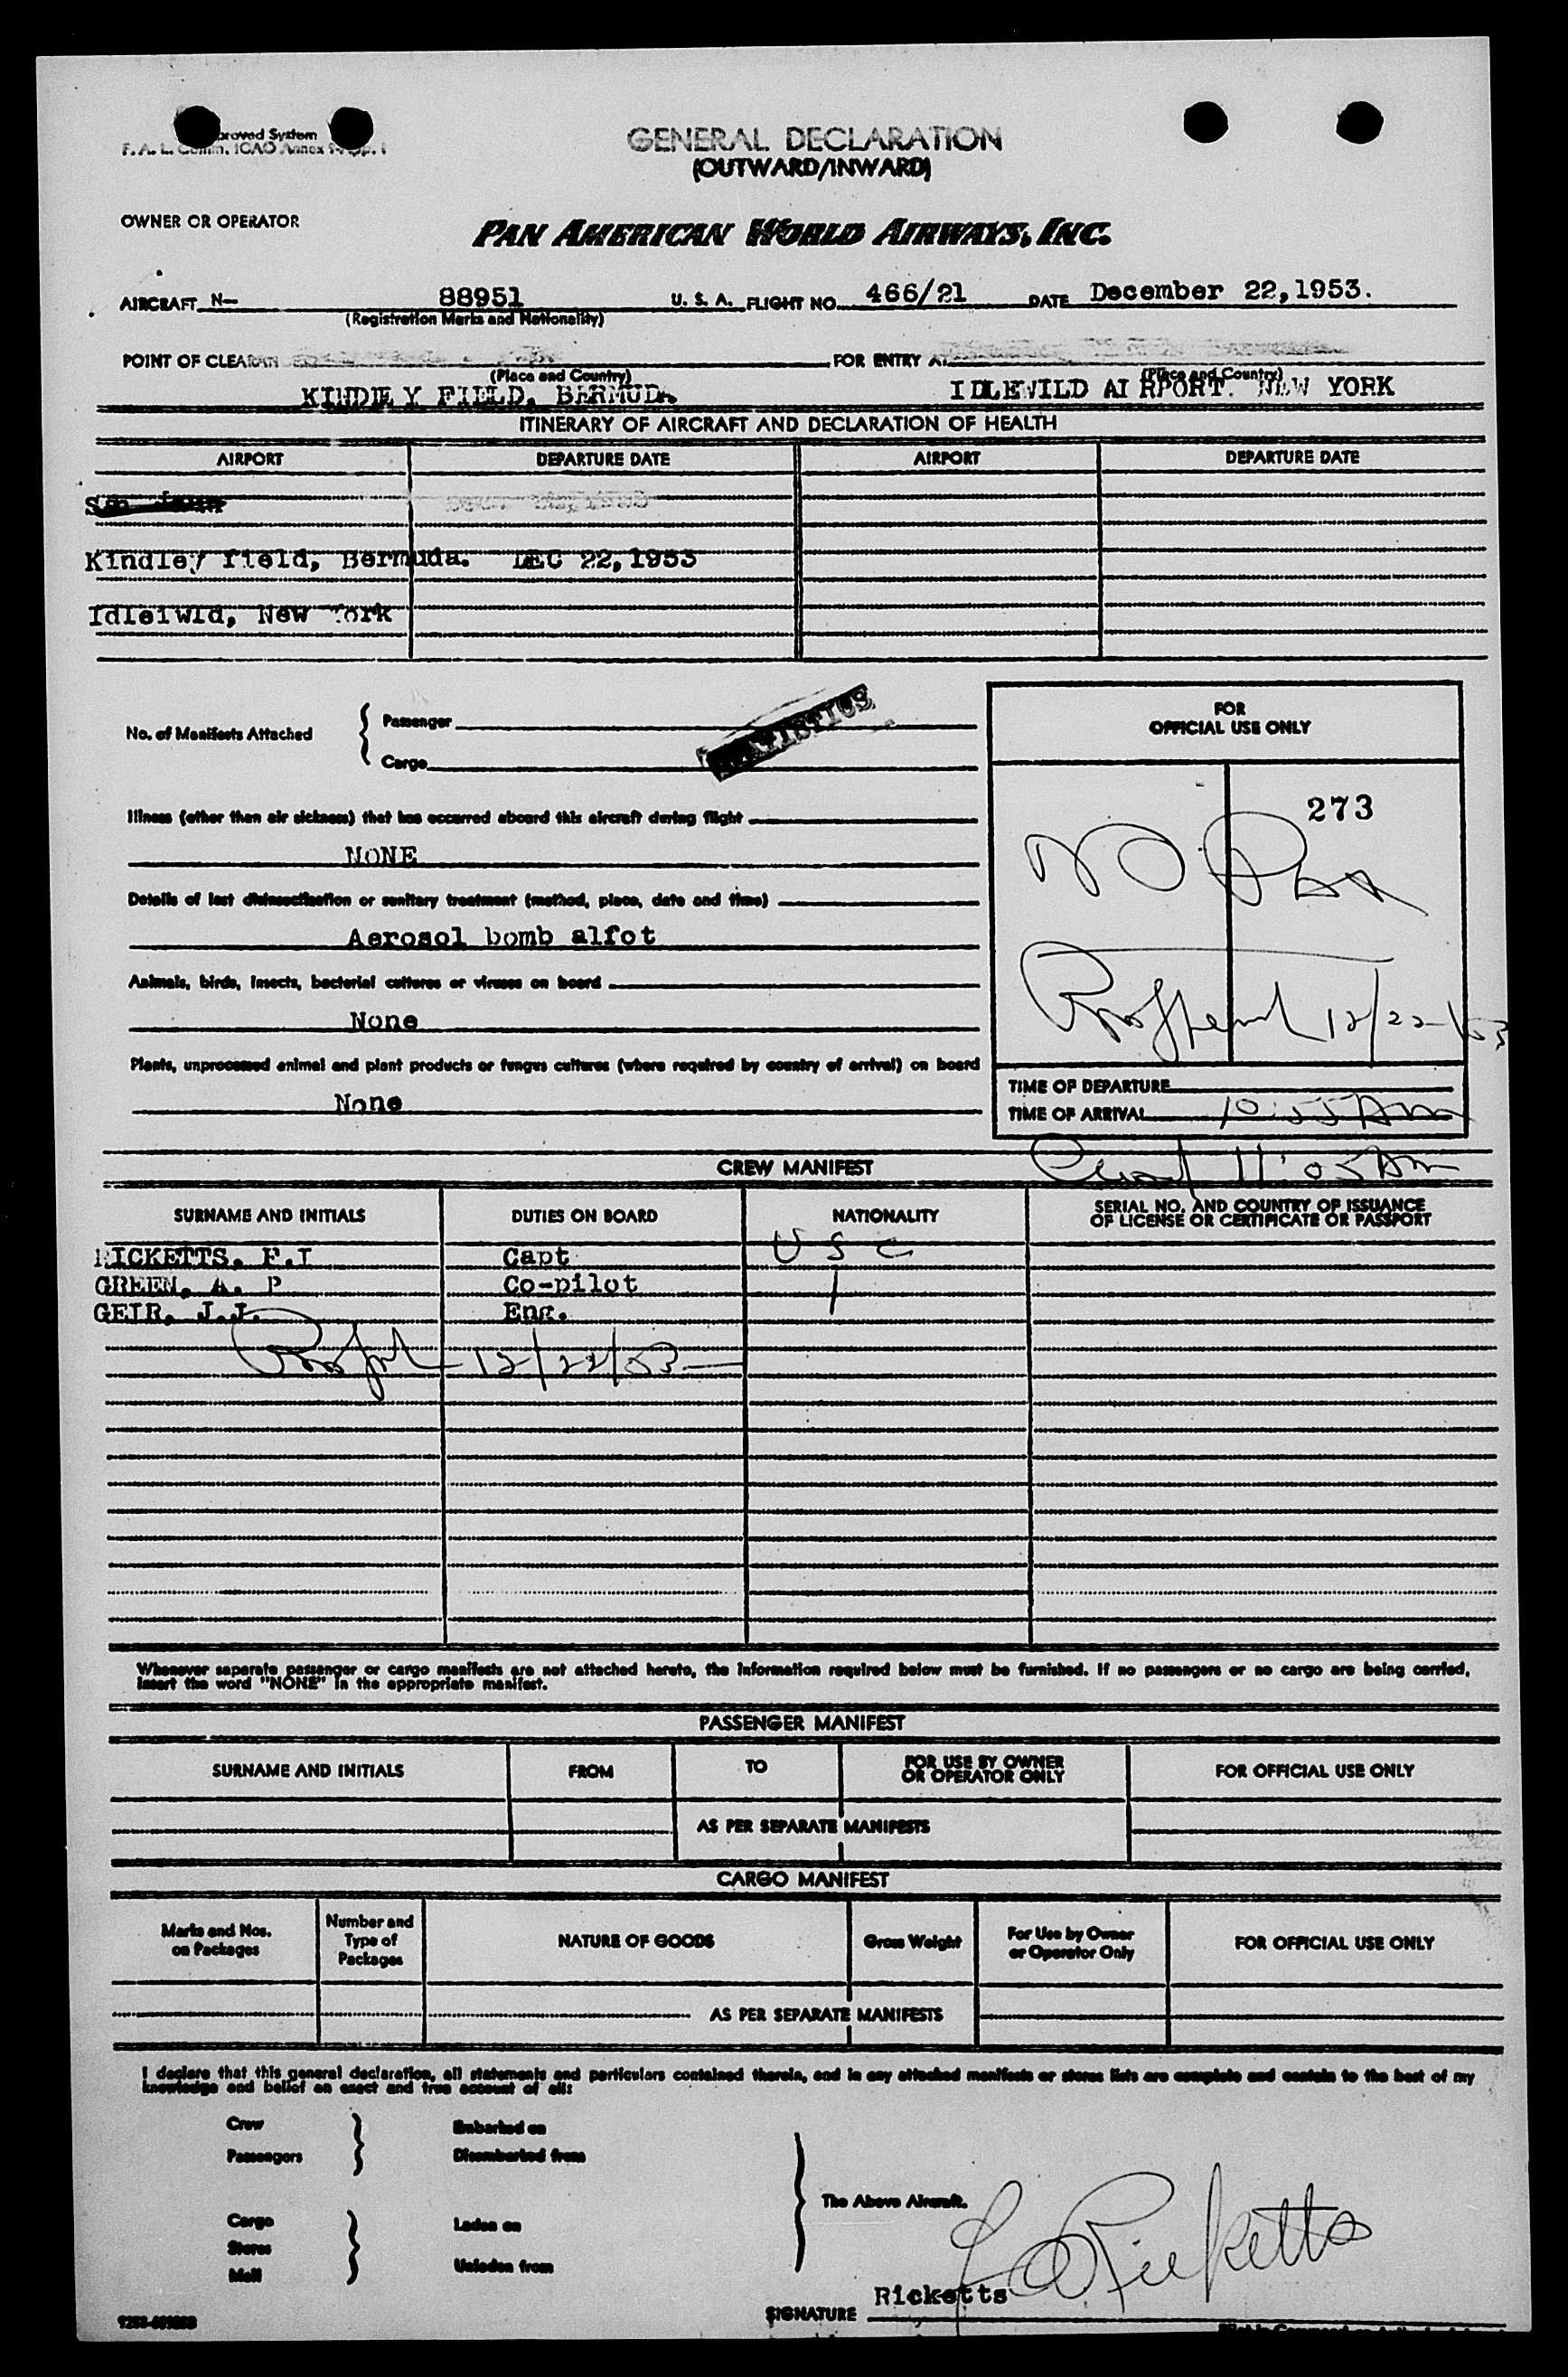 proved System
F. A. L. Comm. ICAO Annex
GENERAL DECLARATION
(OUTWARD/INWARD)
OWNER OR OPERATOR
PAN AMERICAN WORLD AIRWAYS, INC.
AIRCRAFT N- 88951 U. S. A. FLIGHT NO. 466/21 DATE December 22,1953.
(Registration Marks and Nationality)
POINT OF CLEARAN FOR ENTRY AT
(Place and Country) (Place and Country)
KINDLEY FIELD, BERMUDA IDLEWILD AI RPORT. NEW YORK
ITINERARY OF AIRCRAFT AND DECLARATION OF HEALTH
AIRPORT DEPARTURE DATE AIRPORT DEPARTURE DATE
San Juan
Kindley field, Bermuda. DEC 22,1953
Idleiwld, New York
No. of Manifests Attached
Passenger
Cargo
STATISTICS
FOR
OFFICIAL USE ONLY
273
NO Pax
12/22/53
Illness (other than air sickness) that has occurred aboard this aircraft during flight
NONE
Details of last disinsectization or sanitary treatment (method, place, date and time)
Aerosol bomb alfot
Animals, birds, insects, bacterial cultures or viruses on board
None
Plants, unprocessed animal and plant products or fungus cultures (where required by country of arrival) on board
None
TIME OF DEPARTURE
TIME OF ARRIVAL 10:55 Am
11:05 Am
CREW MANIFEST
SURNAME AND INITIALS DUTIES ON BOARD NATIONALITY SERIAL NO. AND COUNTRY OF ISSUANCE
OF LICENSE OR CERTIFICATE OR PASSPORT
RICKETTS. F.I Capt U S C
GREEN, A. P Co-pilot
GEIR, J.J. Eng.
12/22/53
Whenever separate passenger or cargo manifests are not attached hereto, the information required below must be furnished. If no passengers or no cargo are being carried,
insert the word "NONE" in the appropriate manifest.
PASSENGER MANIFEST
SURNAME AND INITIALS FROM TO FOR USE BY OWNER
OR OPERATOR ONLY FOR OFFICIAL USE ONLY
AS PER SEPARATE MANIFESTS
CARGO MANIFEST
Marks and Nos.
on Packages
Number and
Type of
Packages
NATURE OF GOODS
Gross Weight
For Use by Owner
or Operator Only
FOR OFFICIAL USE ONLY
AS PER SEPARATE MANIFESTS
I declare that this general declaration, all statements and particulars contained therein, and in any attached manifests or stores lists are complete and contain to the best of my
knowledge and belief an exact and true account of all:
Crew Embarked on
Passengers Disembarked from
The Above Aircraft.
Cargo Laden on
Stores
Mail Unladen from
Ricketts
Ricketts
SIGNATURE